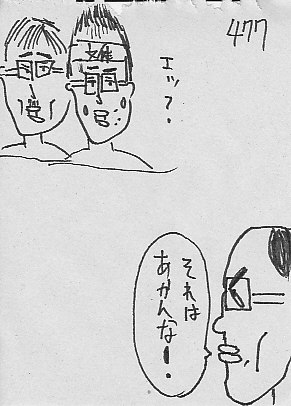 477
エッ?
それは
あかんな!